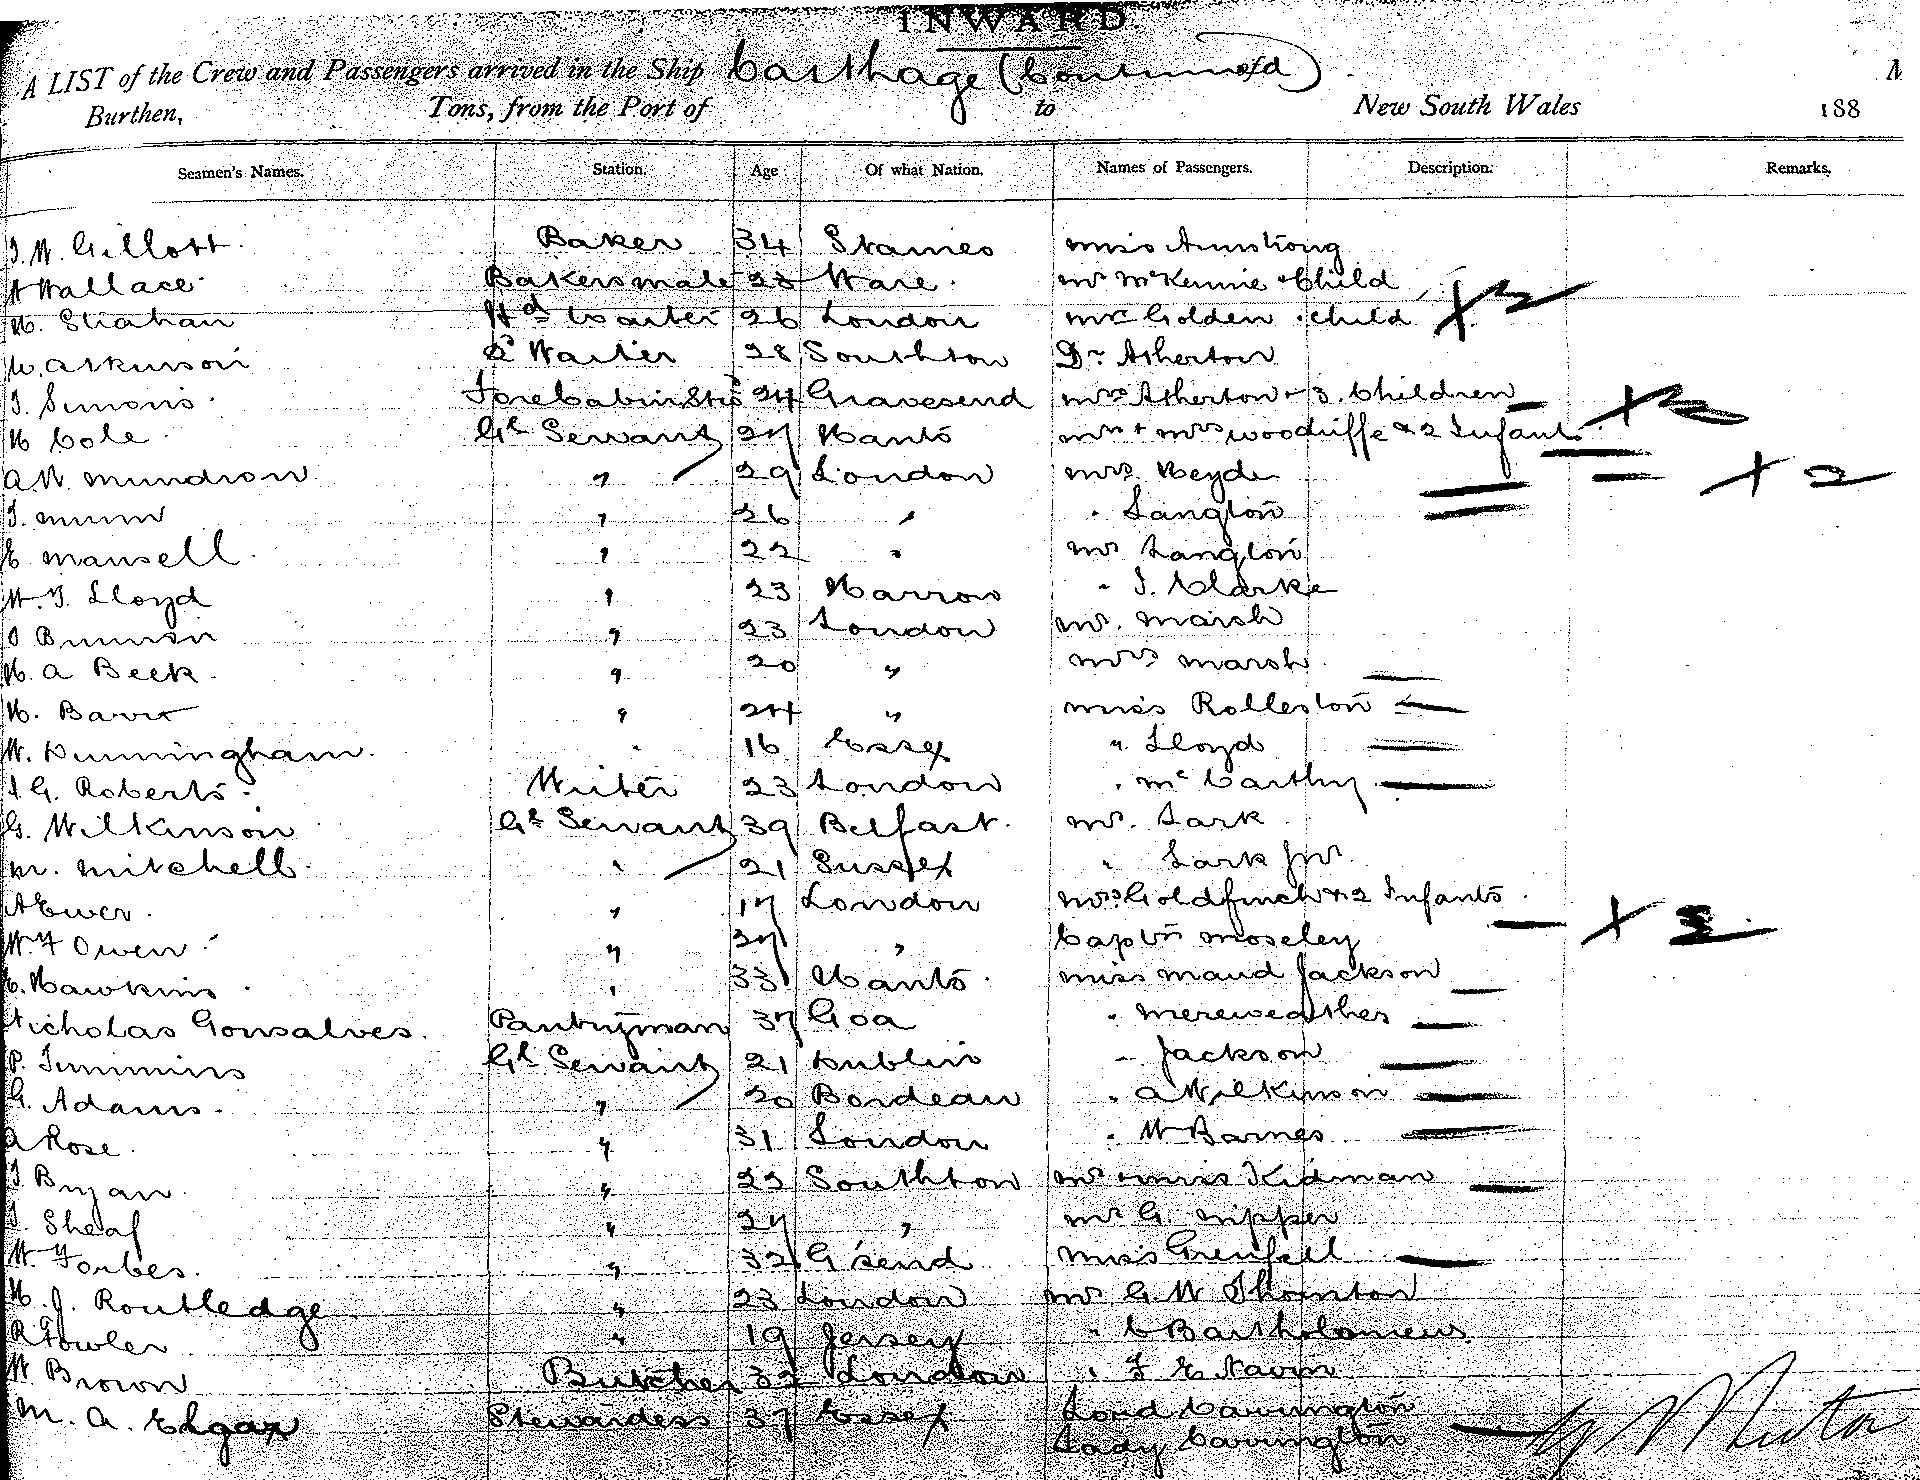 INWARD
A LIST of the Crew and Passengers arrived in the Ship Carthage (Continued)
Burthen, Tons, from the Port of to New South Wales 188
Seamen's Names. Station. Age Of what Nation. Names of Passengers. Description. Remarks.
Gillott Baker 34 Staines Miss Armstrong
Wallace Bakers mate 23 Ware Mr McKennie & Child
H. Strahan Hd Waiter 26 London Mrs Golden & child X 2
W. Atkinson 2d Waiter 28 Southton Dr Atherton
Simons Fore Cabin Std 24 Gravesend Mrs Atherton & 3 Children X
H Cole Gl Servant 27 Hants Mr & Mrs Woodriffe & 2 Infants
A.W. Mundron " 29 London Mrs Heyde X 2
J. Munn " 26 " " Langton
E Mansell " 22 " Mr Langton
W. J. Lloyd " 23 Harrow " J. Clarke
" 23 London Mr. Marsh
H. A Beek " 20 " Mrs Marsh
H. Barrt " 24 " Miss Rolleston
W. Dunningham " 16 Essex " Lloyd
J G. Roberts Writer 23 London " McCarthy
G. Wilkinson Gl Servant 39 Belfast Mr. Lark
M. Mitchell " 21 Sussex " Lark Jnr.
A Ewer " 17 London Mrs Goldfinch & 2 Infants
W. F Owen " 37 " Captn Moseley X
E. Hawkins " 33 Hants Miss Maud Jackson
Nicholas Gonsalves Pantryman 37 Goa " Mereweather
P. Timmins Gl Servant 21 Dublin " Jackson
G. Adams " 20 Bordeau " A Wilkinson
A Rose " 31 London " W Barnes
J Bryan " 22 Southton Mr & Miss Kidman
J. Sheaf " 27 " Mr G. Nipper
W. Forbes " 32 G'send Miss Grenfell
H. J. Routledge " 23 London Mr G. W Thornton
R Fowler " 19 Jersey " C Bartholomew
W Brown Butcher 32 London " F E Navin
M. A. Edgar Stewardess 37 Essex Lord Carrington
Lady Carrington